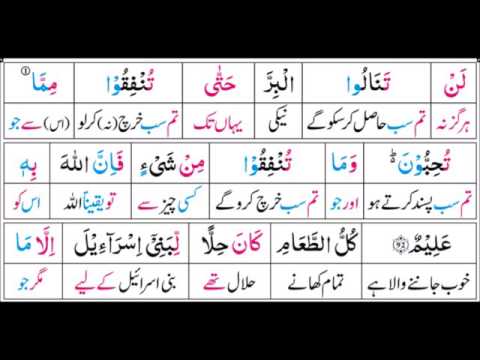 لَنْ تَنَالُوا الْبِرَّ حَتّٰى تُنْفِقُوْا مِمَّا ①
ہرگز نہ تم سب حاصل کر سکو گے نیکی یہاں تک تم سب خرچ (نہ) کر لو (اس) سے جو
تُحِبُّوْنَ ؕ وَمَا تُنْفِقُوْا مِنْ شَیْءٍ فَاِنَّ اللّٰهَ بِهٖ
تم سب پسند کرتے ہو اور جو تم سب خرچ کرو گے کسی چیز سے تو یقیناً اللہ اس کو
عَلِیْمٌ ﴿92﴾ كُلُّ الطَّعَامِ كَانَ حِلًّا لِّبَنِیْۤ اِسْرَآءِیْلَ اِلَّا مَا
خوب جاننے والا ہے تمام کھانے حلال تھے بنی اسرائیل کے لیے مگر جو